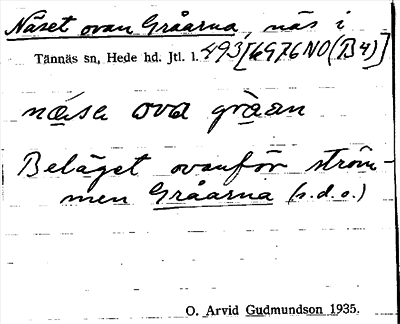 Näset ovan Gråarna, näs i
Tännäs sn, Hede hd. Jtl. l. 493[6G76NO(B4)]
näsa ova gràan
Beläget ovanför ström-
men Gråarna (s.d.o.)
O. Arvid Gudmundson 1935.